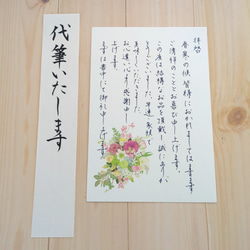 拝啓
春風の候 皆様におかれましては益々
ご清祥のこととお喜び申し上げます。
この度は結構なお品を頂戴し誠にありが
とうございました。早速家族で
美味しくいただきました。
お心遣い心より感謝申し
上げます。
まずは書中にて御礼申し上げます
代筆いたします